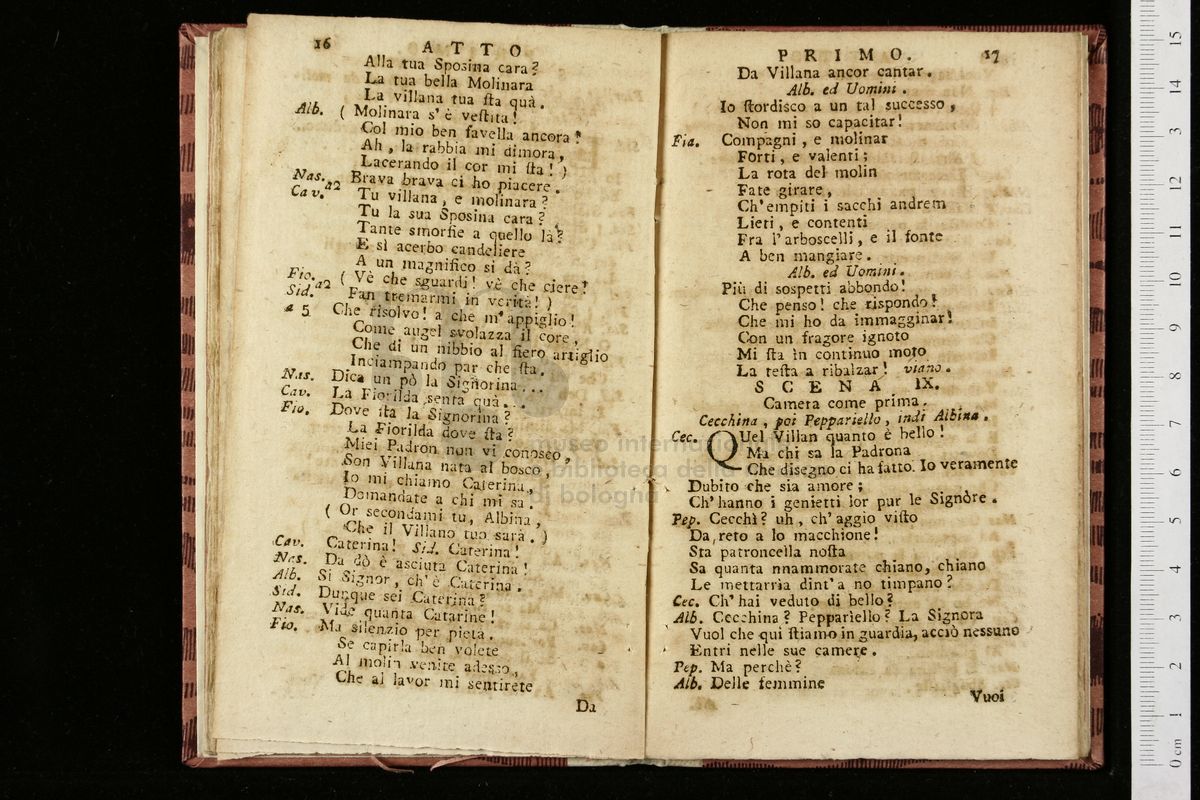 16 ATTO
Alla tua Sposina cara?
La tua bella Molinara
La villana tua sta quà.
Alb. ( Molinara s'è vestita!
Col mio ben favella ancora?
Ah, la rabbia mi dimora,
Lacerando il cor mi sta! )
Nas. a2 Brava brava ci ho piacere.
Cav. Tu villana, e molinara?
Tu la sua Sposina cara?
Tante smorfie a quello là?
E sì acerbo candeliere
A un magnifico si dà?
Fio. a2 ( Vè che sguardi! vè che ciere!
Sid. Fan tremarmi in verità! )
a 5 Che risolvo! a che m'appiglio!
Come augel svolazza il core,
Che di un nibbio al fiero artiglio
Inciampando par che sta.
Nas. Dica un pò la Signorina...
Cav. La Fiorilda senta quà...
Fio. Dove sta la Signorina?
La Fiorilda dove sta?
Miei Padron non vi conosco,
Son Villana nata al bosco,
Io mi chiamo Caterina,
Domandate a chi mi sa.
( Or secondami tu, Albina,
Che il Villano tuo sarà. )
Cav. Caterina! Sid. Caterina!
Nas. Da dò è asciuta Caterina!
Alb. Si Signor, ch'è Caterina.
Sid. Dunque sei Caterina?
Nas. Vide quanta Catarine!
Fio. Ma silenzio per pietà.
Se capirla ben volete
Al molin venite adesso,
Che al lavor mi sentirete
Da
PRIMO. 17
Da Villana ancor cantar.
Alb. ed Uomini.
Io stordisco a un tal successo,
Non mi so capacitar!
Fia. Compagni, e molinar
Forti, e valenti;
La rota del molin
Fate girare,
Ch'empiti i sacchi andrem
Lieti, e contenti
Fra l'arboscelli, e il fonte
A ben mangiare.
Alb. ed Uomini.
Più di sospetti abbondo!
Che penso! che rispondo!
Che mi ho da immagginar!
Con un fragore ignoto
Mi sta in continuo moto
La testa a ribalzar! viano.
SCENA IX.
Camera come prima.
Cecchina, poi Peppariello, indi Albina.
Cec. QUel Villan quanto è bello!
Ma chi sa la Padrona
Che disegno ci ha fatto. Io veramente
Dubito che sia amore;
Ch'hanno i genietti lor pur le Signore.
Pep. Cecchì? uh, ch'aggio visto
Da reto a lo macchione!
Sta patroncella nosta
Sa quanta nnammorate chiano, chiano
Le mettarrìa dint'a no timpano?
Cec. Ch'hai veduto di bello?
Alb. Cecchina? Peppariello? La Signora
Vuol che qui stiamo in guardia, acciò nessuno
Entri nelle sue camere.
Pep. Ma perchè?
Alb. Delle femmine
Vuoi
museo internazionale
biblioteca della
di bologna
0 cm 1 2 3 4 5 6 7 8 9 10 11 12 13 14 15